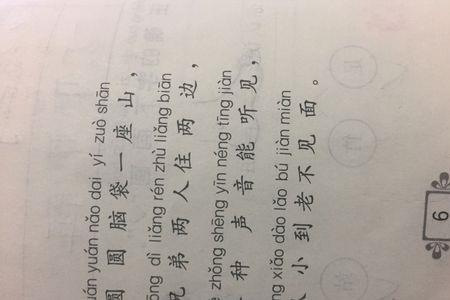 yuán nǎo dai yí zuò shān
圆圆脑袋一座山，
dì liǎng rén zhù liǎng biān
兄弟两人住两边，
zhǒng shēng yīn néng tīng jiàn
种声音能听见，
xiǎo dào lǎo bú jiàn miàn
小到老不见面。
6